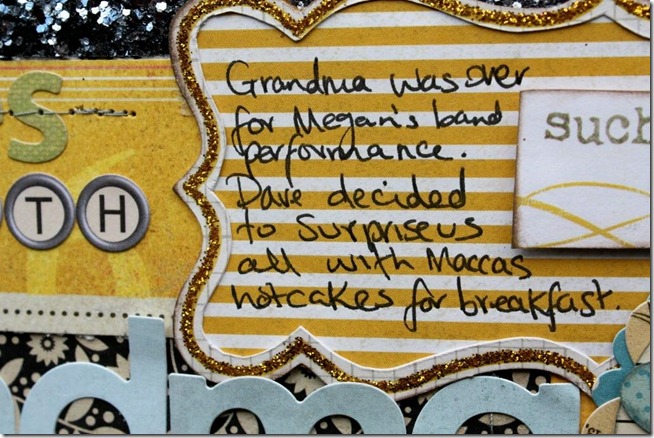 Grandma was over
for Megan's band
performance.
Dave decided
to Surprise us
all with Maccas
hotcakes for breakfast.
such
S
TH
ndma